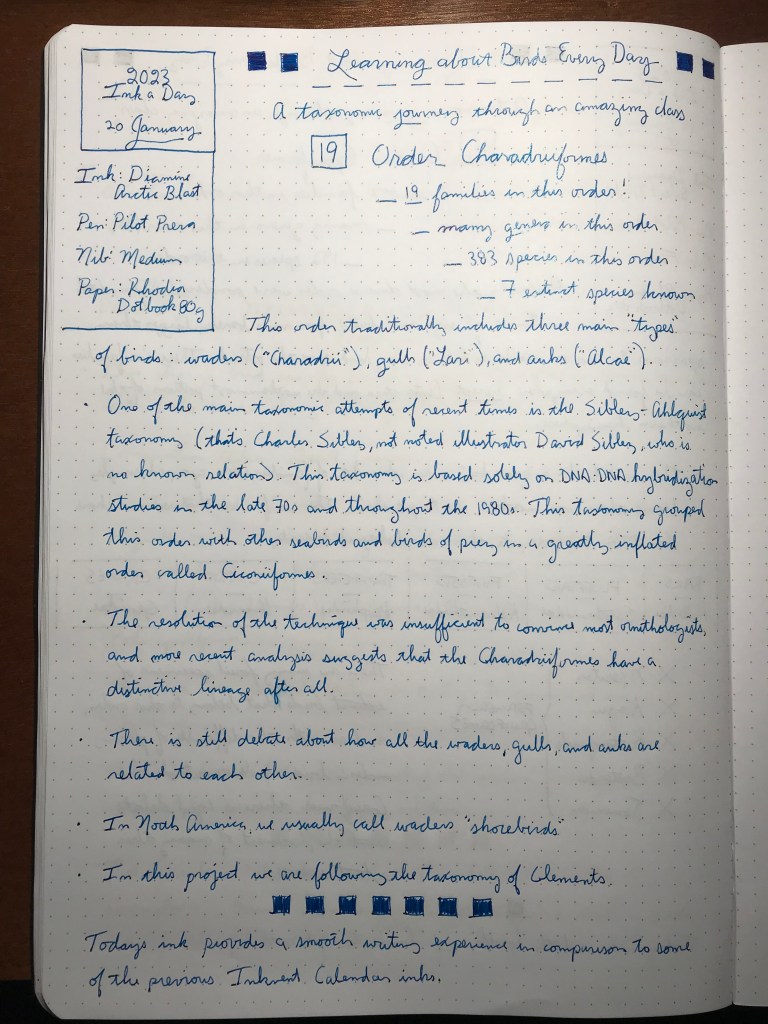 2023
Ink a Day
20 January
Ink: Diamine
Arctic Blast
Pen: Pilot Prera
Nib: Medium
Paper: Rhodia
Dotbook 80g
Learning about Birds Every Day
A taxonomic journey through an amazing class
19 Order Charadriiformes
— 19 families in this order!
— many genera in this order
— 383 species in this order
— 7 extinct species known
This order traditionally includes three main "types"
of birds: waders ("Charadrii"), gulls ("Lari"), and auks ("Alcae").
· One of the main taxonomic attempts of recent times is the Sibley-Ahlquist
taxonomy (that's Charles Sibley, not noted illustrator David Sibley, who is
no known relation). This taxonomy is based solely on DNA:DNA hybridization
studies in the late 70s and throughout the 1980s. This taxonomy grouped
this order with other seabirds and birds of prey in a greatly inflated
order called Ciconiiformes.
· The resolution of the technique was insufficient to convince most ornithologists,
and more recent analysis suggests that the Charadriiformes have a
distinctive lineage after all.
· There is still debate about how all the waders, gulls, and auks are
related to each other.
· In North America, we usually call waders "shorebirds"
· In this project we are following the taxonomy of Clements.
Todays ink provides a smooth writing experience in comparison to some
of the previous Inkvent Calendar inks.